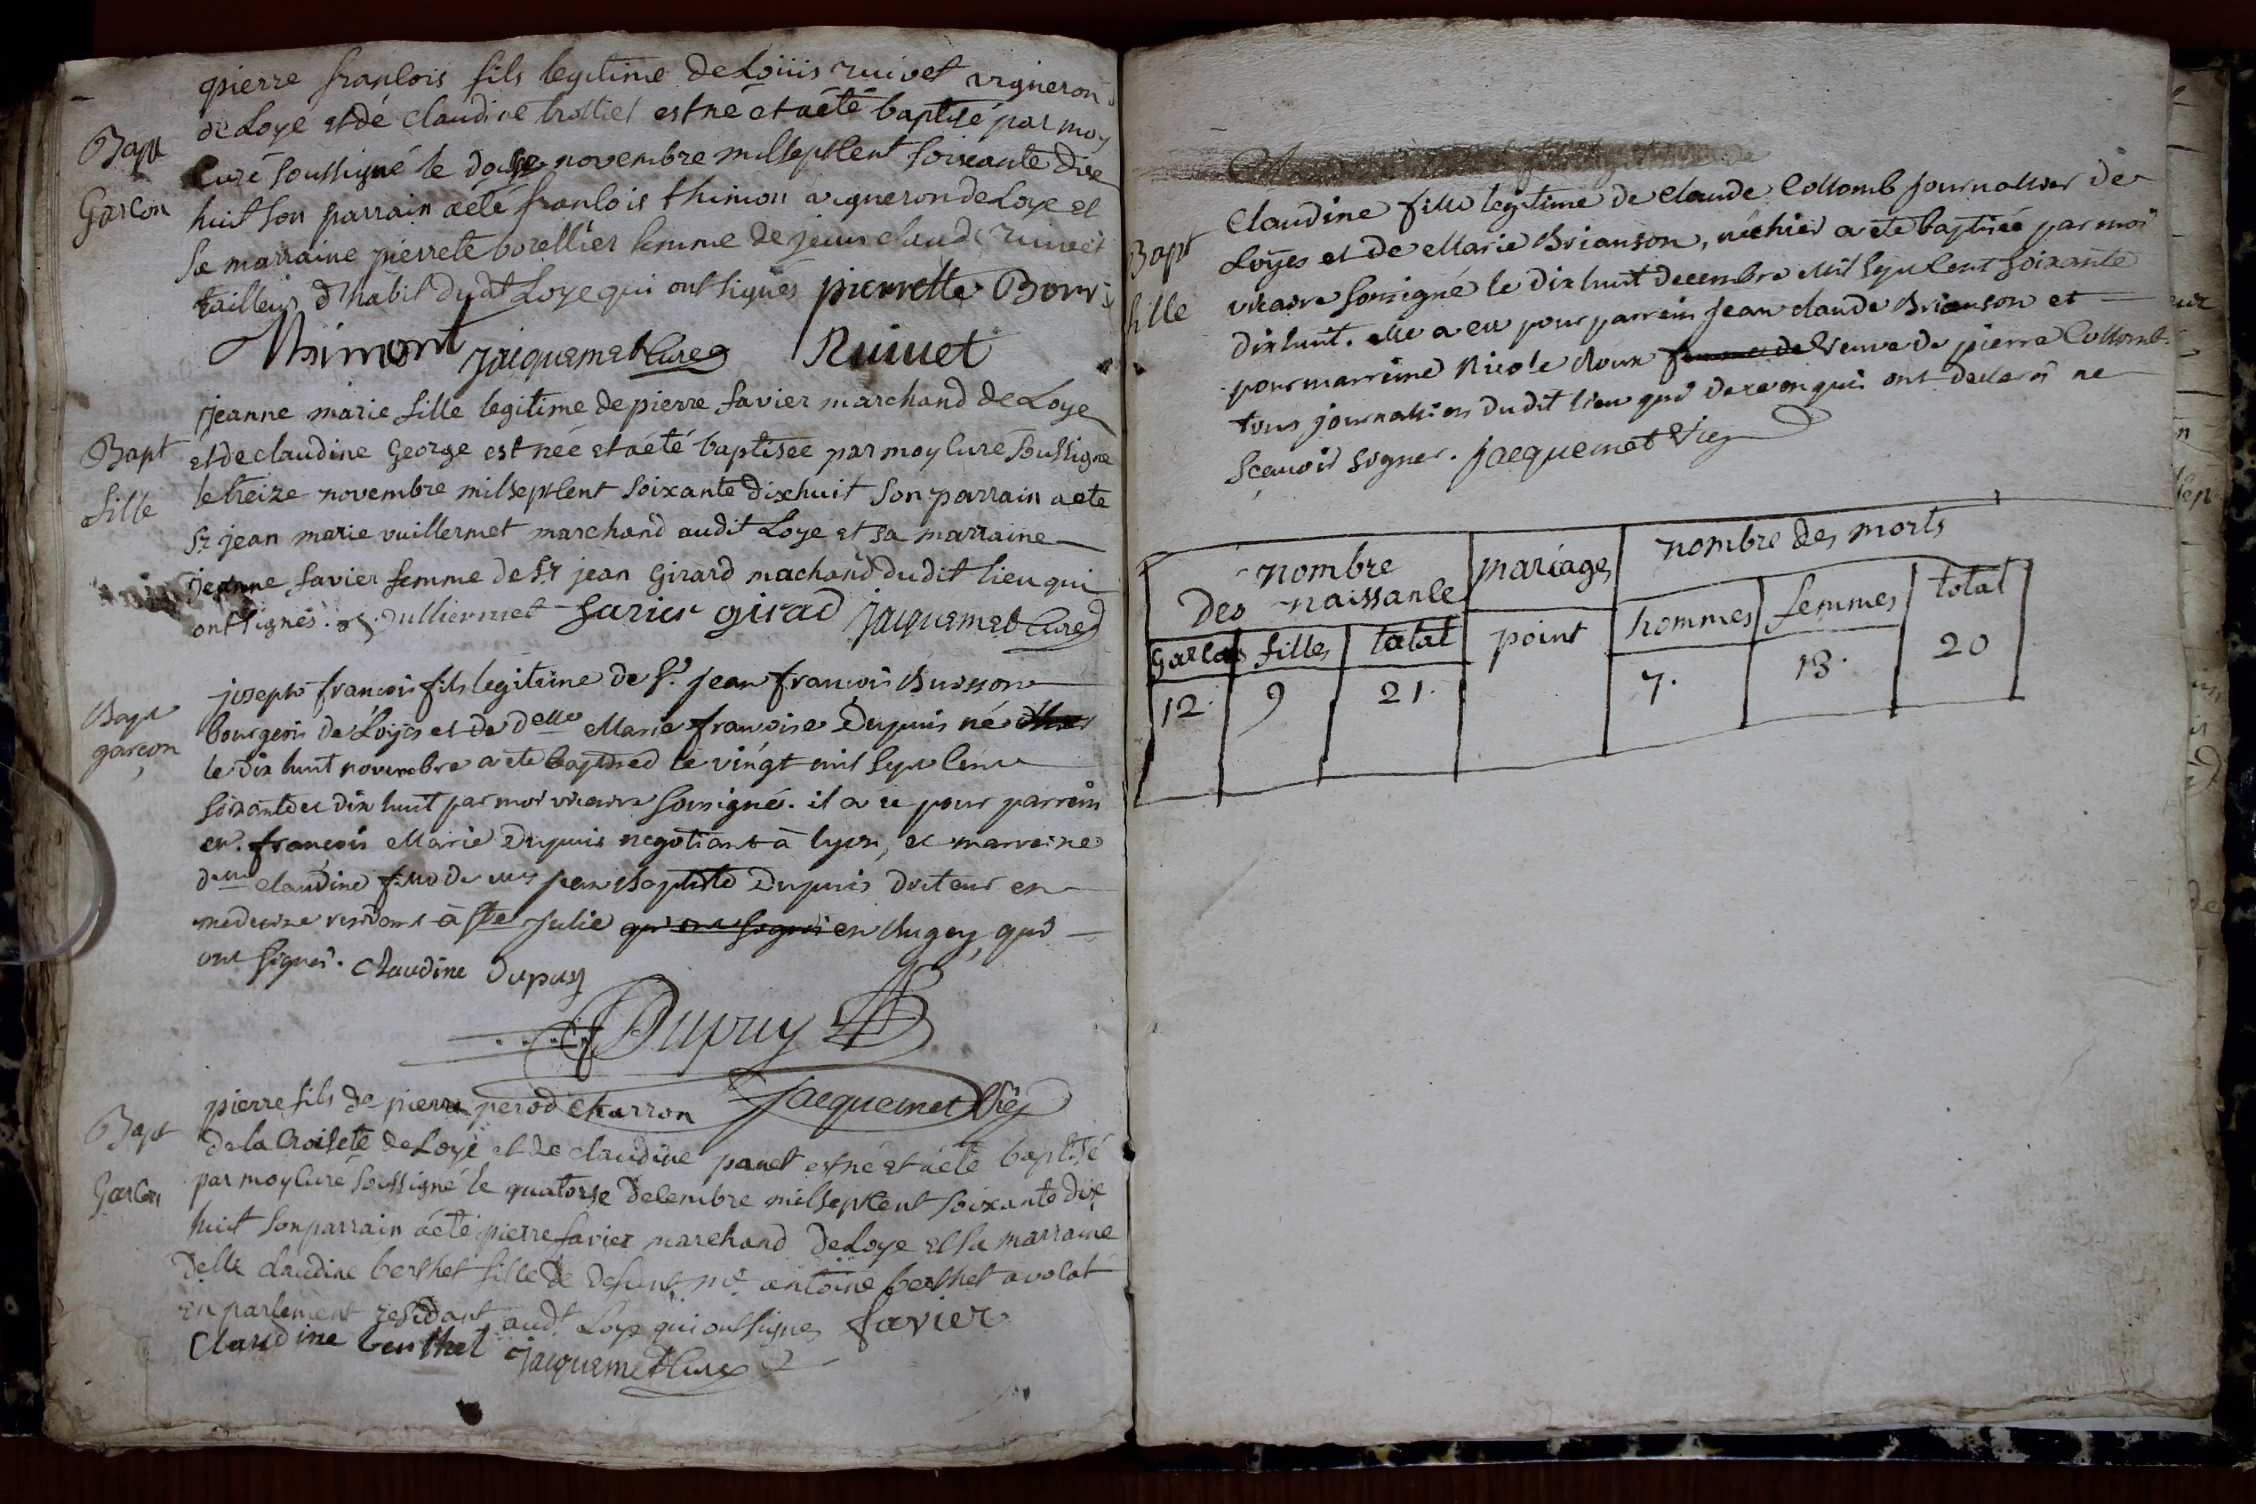 pierre françois fils legitime de Loüis ruivet vigneron
de Loye et dé claudine trolliet est né et aété baptisé par moy
Bapt
Curé soussigné le douze novembre milseptcent soixante dix
Garcon
huit son parrain aété françois thimon vigneron de Loye et
sa marraine pierrete borellier femme de jean claude ruivet
tailleur d'habit dudt Loye qui ont signés pierrette Borr
Thimont jacquemet Curé Ruivet
jeanne marie fille legitime de pierre favier marchand de Loye
Bapt
et de claudine George est née et aété baptisée par moy Curé soussigné
fille
le treize novembre milseptcent soixante dixhuit son parrain aete
sr jean marie vuillermet marchand audit Loye et sa marraine
jeanne favier femme de sr jean Girard machand dudit lieu qui
ont signés. vulliermet favier girad jacquemet Curé
joseph françois fils legitime de Sr. jean françois Buisson
Bapt
bourgeois de Loÿes et de delle Marie françoise Dupuis né
garçon
le dix huit novembre a eté baptised le vingt mil sept cent
soixante et dix huit par moi vicaire soussigné. il a eu pour parrein
françois Marie Dupuis negotiant à lyon, et marreine
delle claudine fille de jean Baptiste Dupuis docteur en
medecine residant à Ste julie qui ont signés en Bugey, qui
ont signés. Claudine Dupuy
Dupuy
jacquemet Vic
pierre fils de pierre perod Charron
Bapt
de la Croisete de Loye et de claudine panet est né et aété baptisé
Garcon
par moy Curé soussigné le quatorse decembre milseptcent soixante dix
huit son parrain aété pierre favier marchand de Loye et sa marraine
delle claudine berthet fille de defunt me. antoine berthet avocat
en parlement residant audt Loye qui ont signes favier
Claudine berthet jacquemet Curé
Claudine fille legitime de Claude Collomb journallier de
Bapt
Loÿes et de Marie Brianson, née hier a eté baptisée par moi
vicaire soussigné le dix huit decembre Mil sept cent soixante
fille
dix huit. elle a eu pour parrein jean claude Brianson et
pour marreine Nicole Roux femme de Veuve de pierre Collomb
tous journaliers dudit lieu qui de ce enquis ont declaré ne
sçavoir signer. jacquemet Vic
nombre des naissance mariages nombre des morts
Garcons filles total point hommes femmes total
12. 9 21. 7. 13. 20